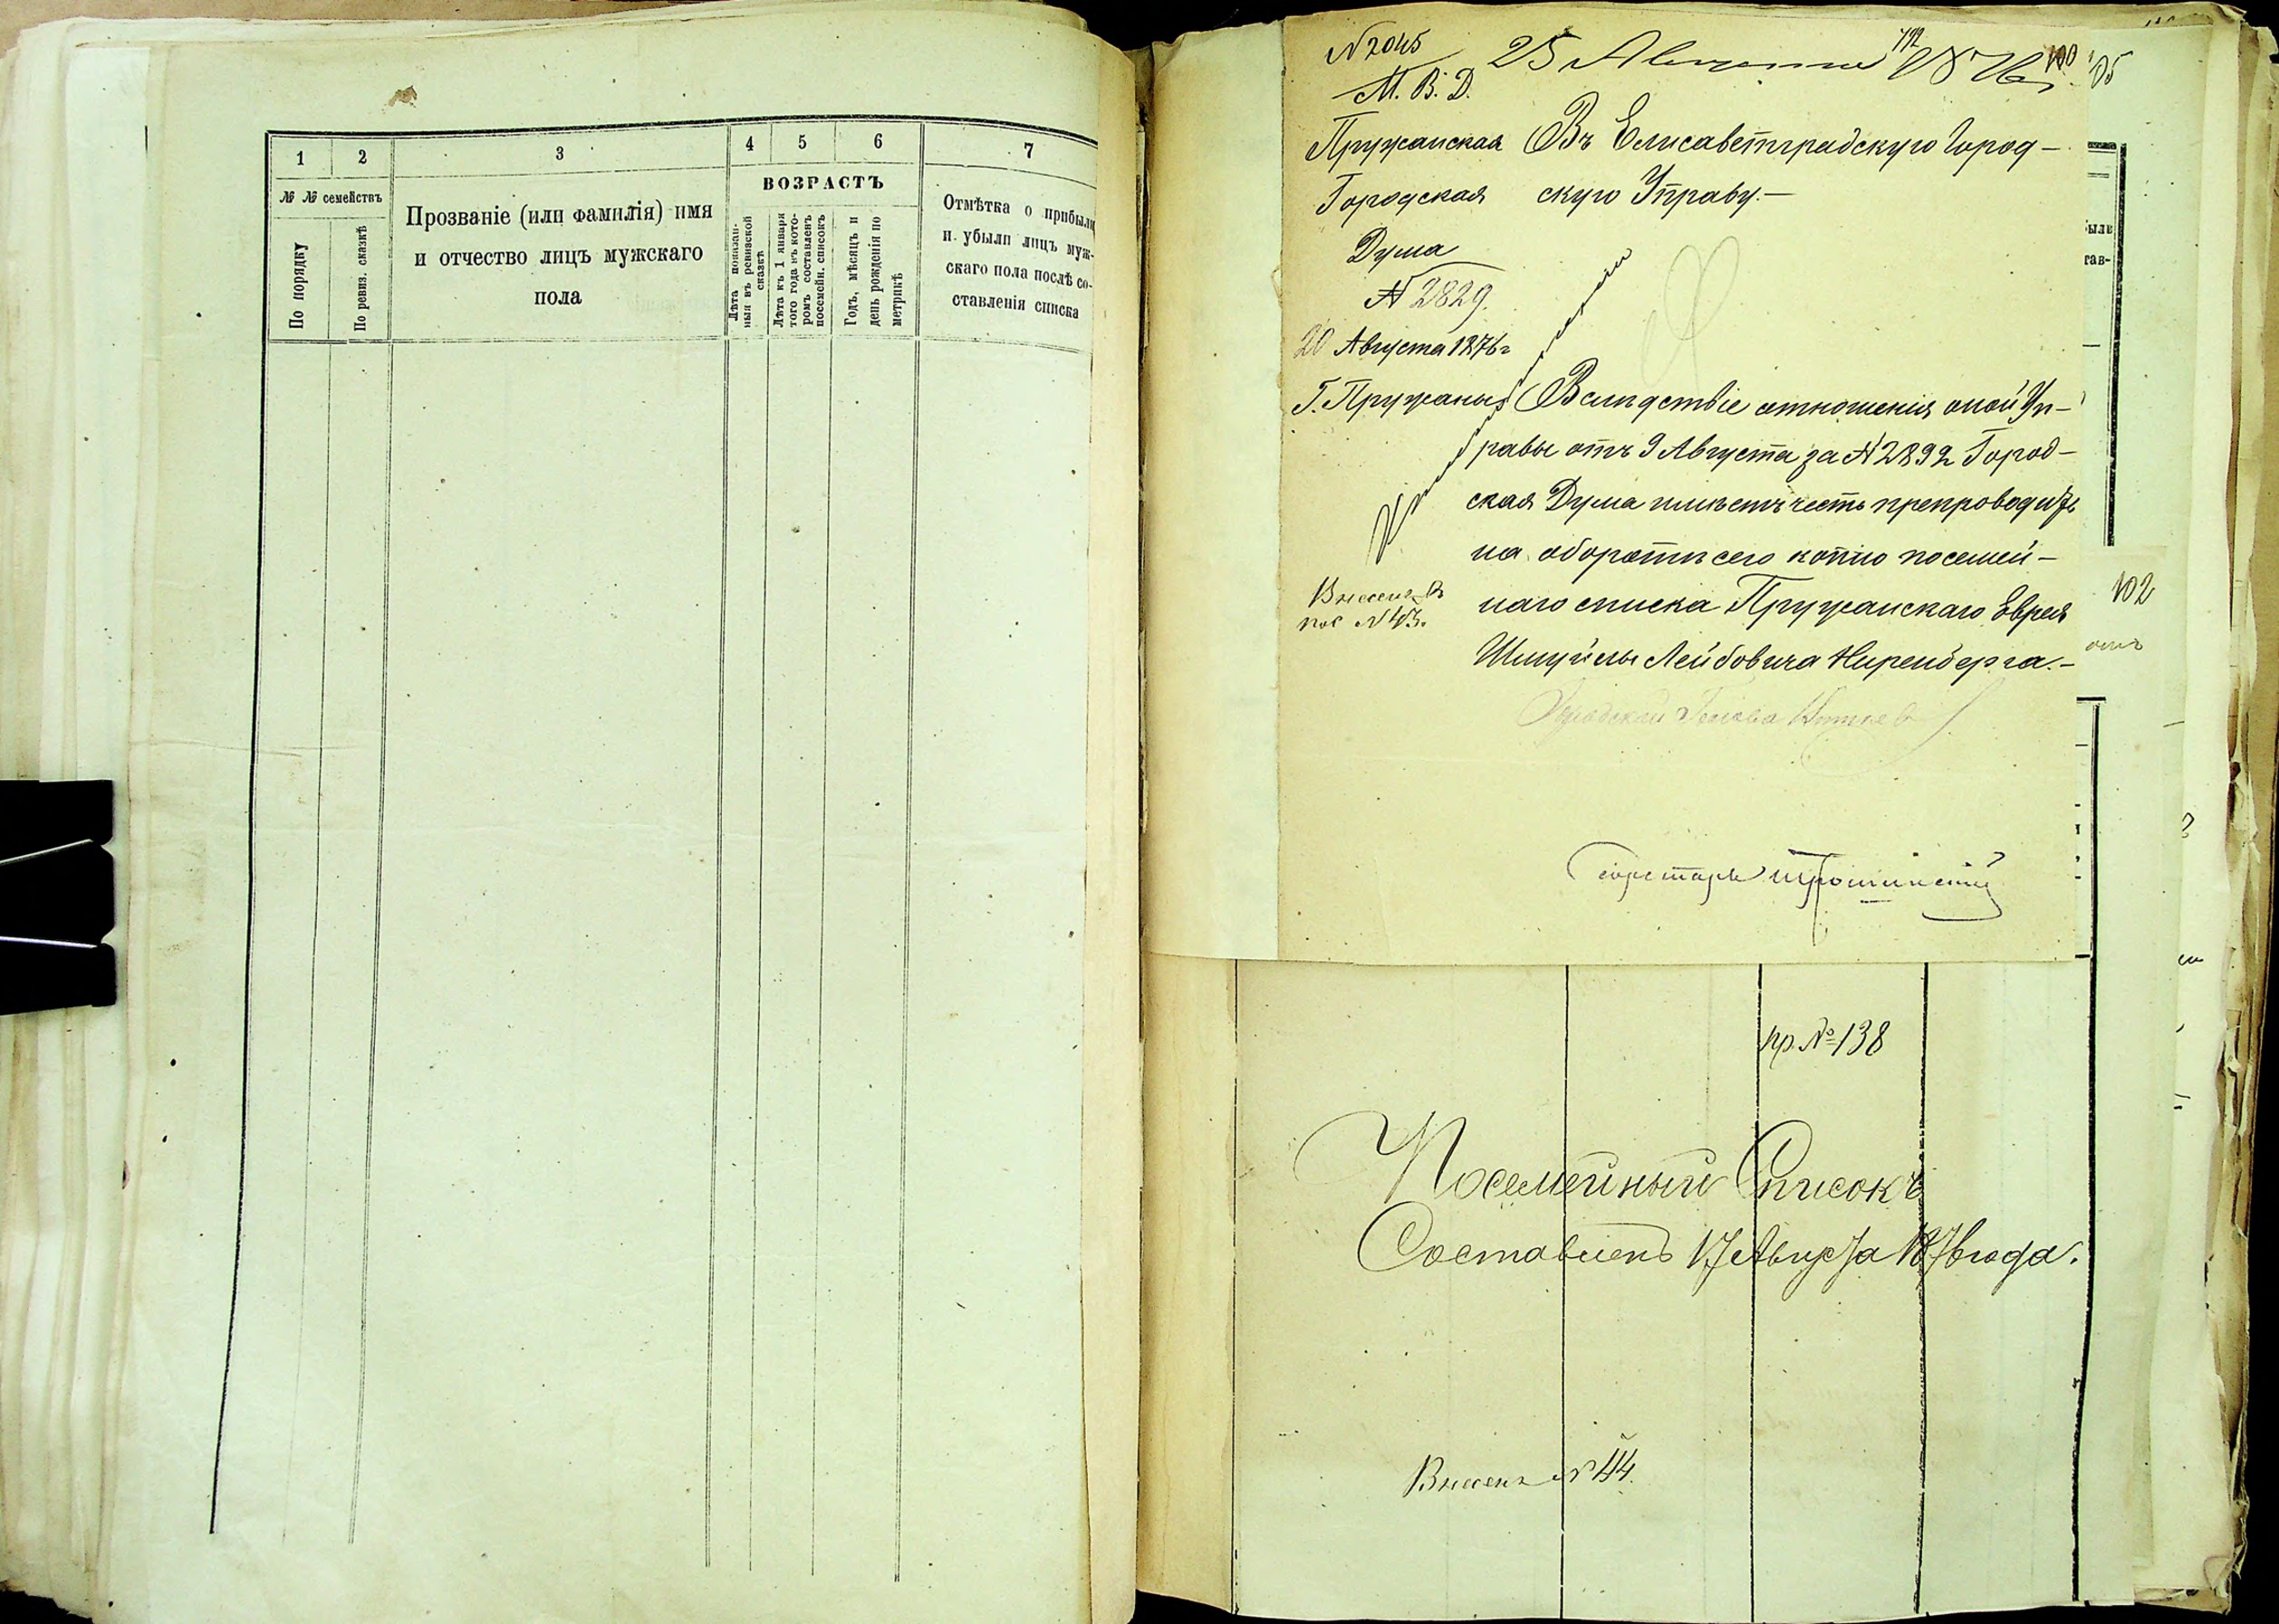 1
2
3
4
5
6
7
№ № семействъ
По порядку
По ревиз. сказкѣ
Прозваніе (или фамилія) имя
и отчество лицъ мужскаго
пола
ВОЗРАСТЪ
Лѣта показан-
ныя въ ревизской
сказкѣ
Лѣта къ 1 января
того года въ кото-
ромъ составленъ
посемейн. списокъ
Годъ, мѣсяцъ и
день рожденія по
метрикѣ
Отмѣтка о прибыли
и убыли лицъ муж-
скаго пола послѣ со-
ставленія списка
N 2045
25 Августа 1876 г.
М. В. Д.
Пружанская
Городская
Дума
N 2829.
20 Августа 1876 г
Г. Пружаны
Въ Елисаветградскую Город-
скую Управу.-
Вслѣдствіе отношенія оной Уп-
равы отъ 9 Августа за N 2892 Город-
ская Дума имѣетъ честь препроводить
на оборотѣ сего копію посемей-
наго списка Пружанскаго Еврея
Шмуйлы Лейбовича Ниренберга.-
Внесенъ въ
пос N 43.
Городской Голова
Секретарь
102
отъ
пр. № 138
Посемейный Списокъ
Составленъ 17 Августа 1876 года.
Внесенъ N 44.